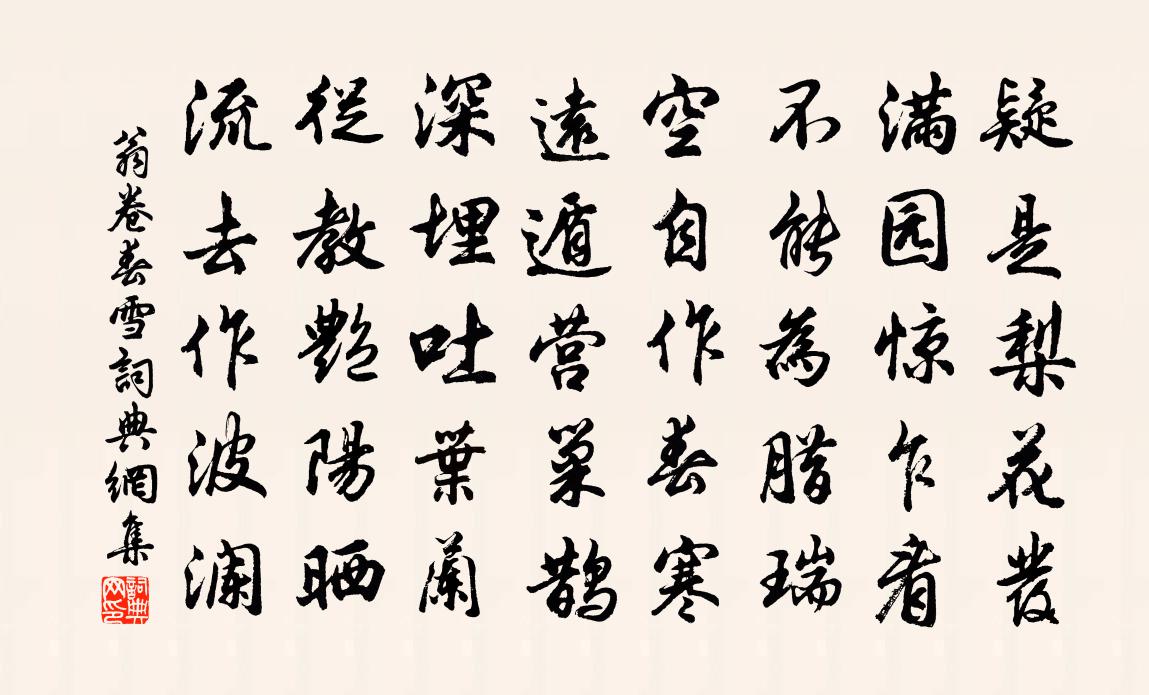 疑是梨花發
满园惊乍看
不能為腊瑞
空自作春寒
遠遁营巢鹊
深埋吐葉蘭
從教艶陽晒
流去作波澜
翁卷春雪詞典網集
詞典网印